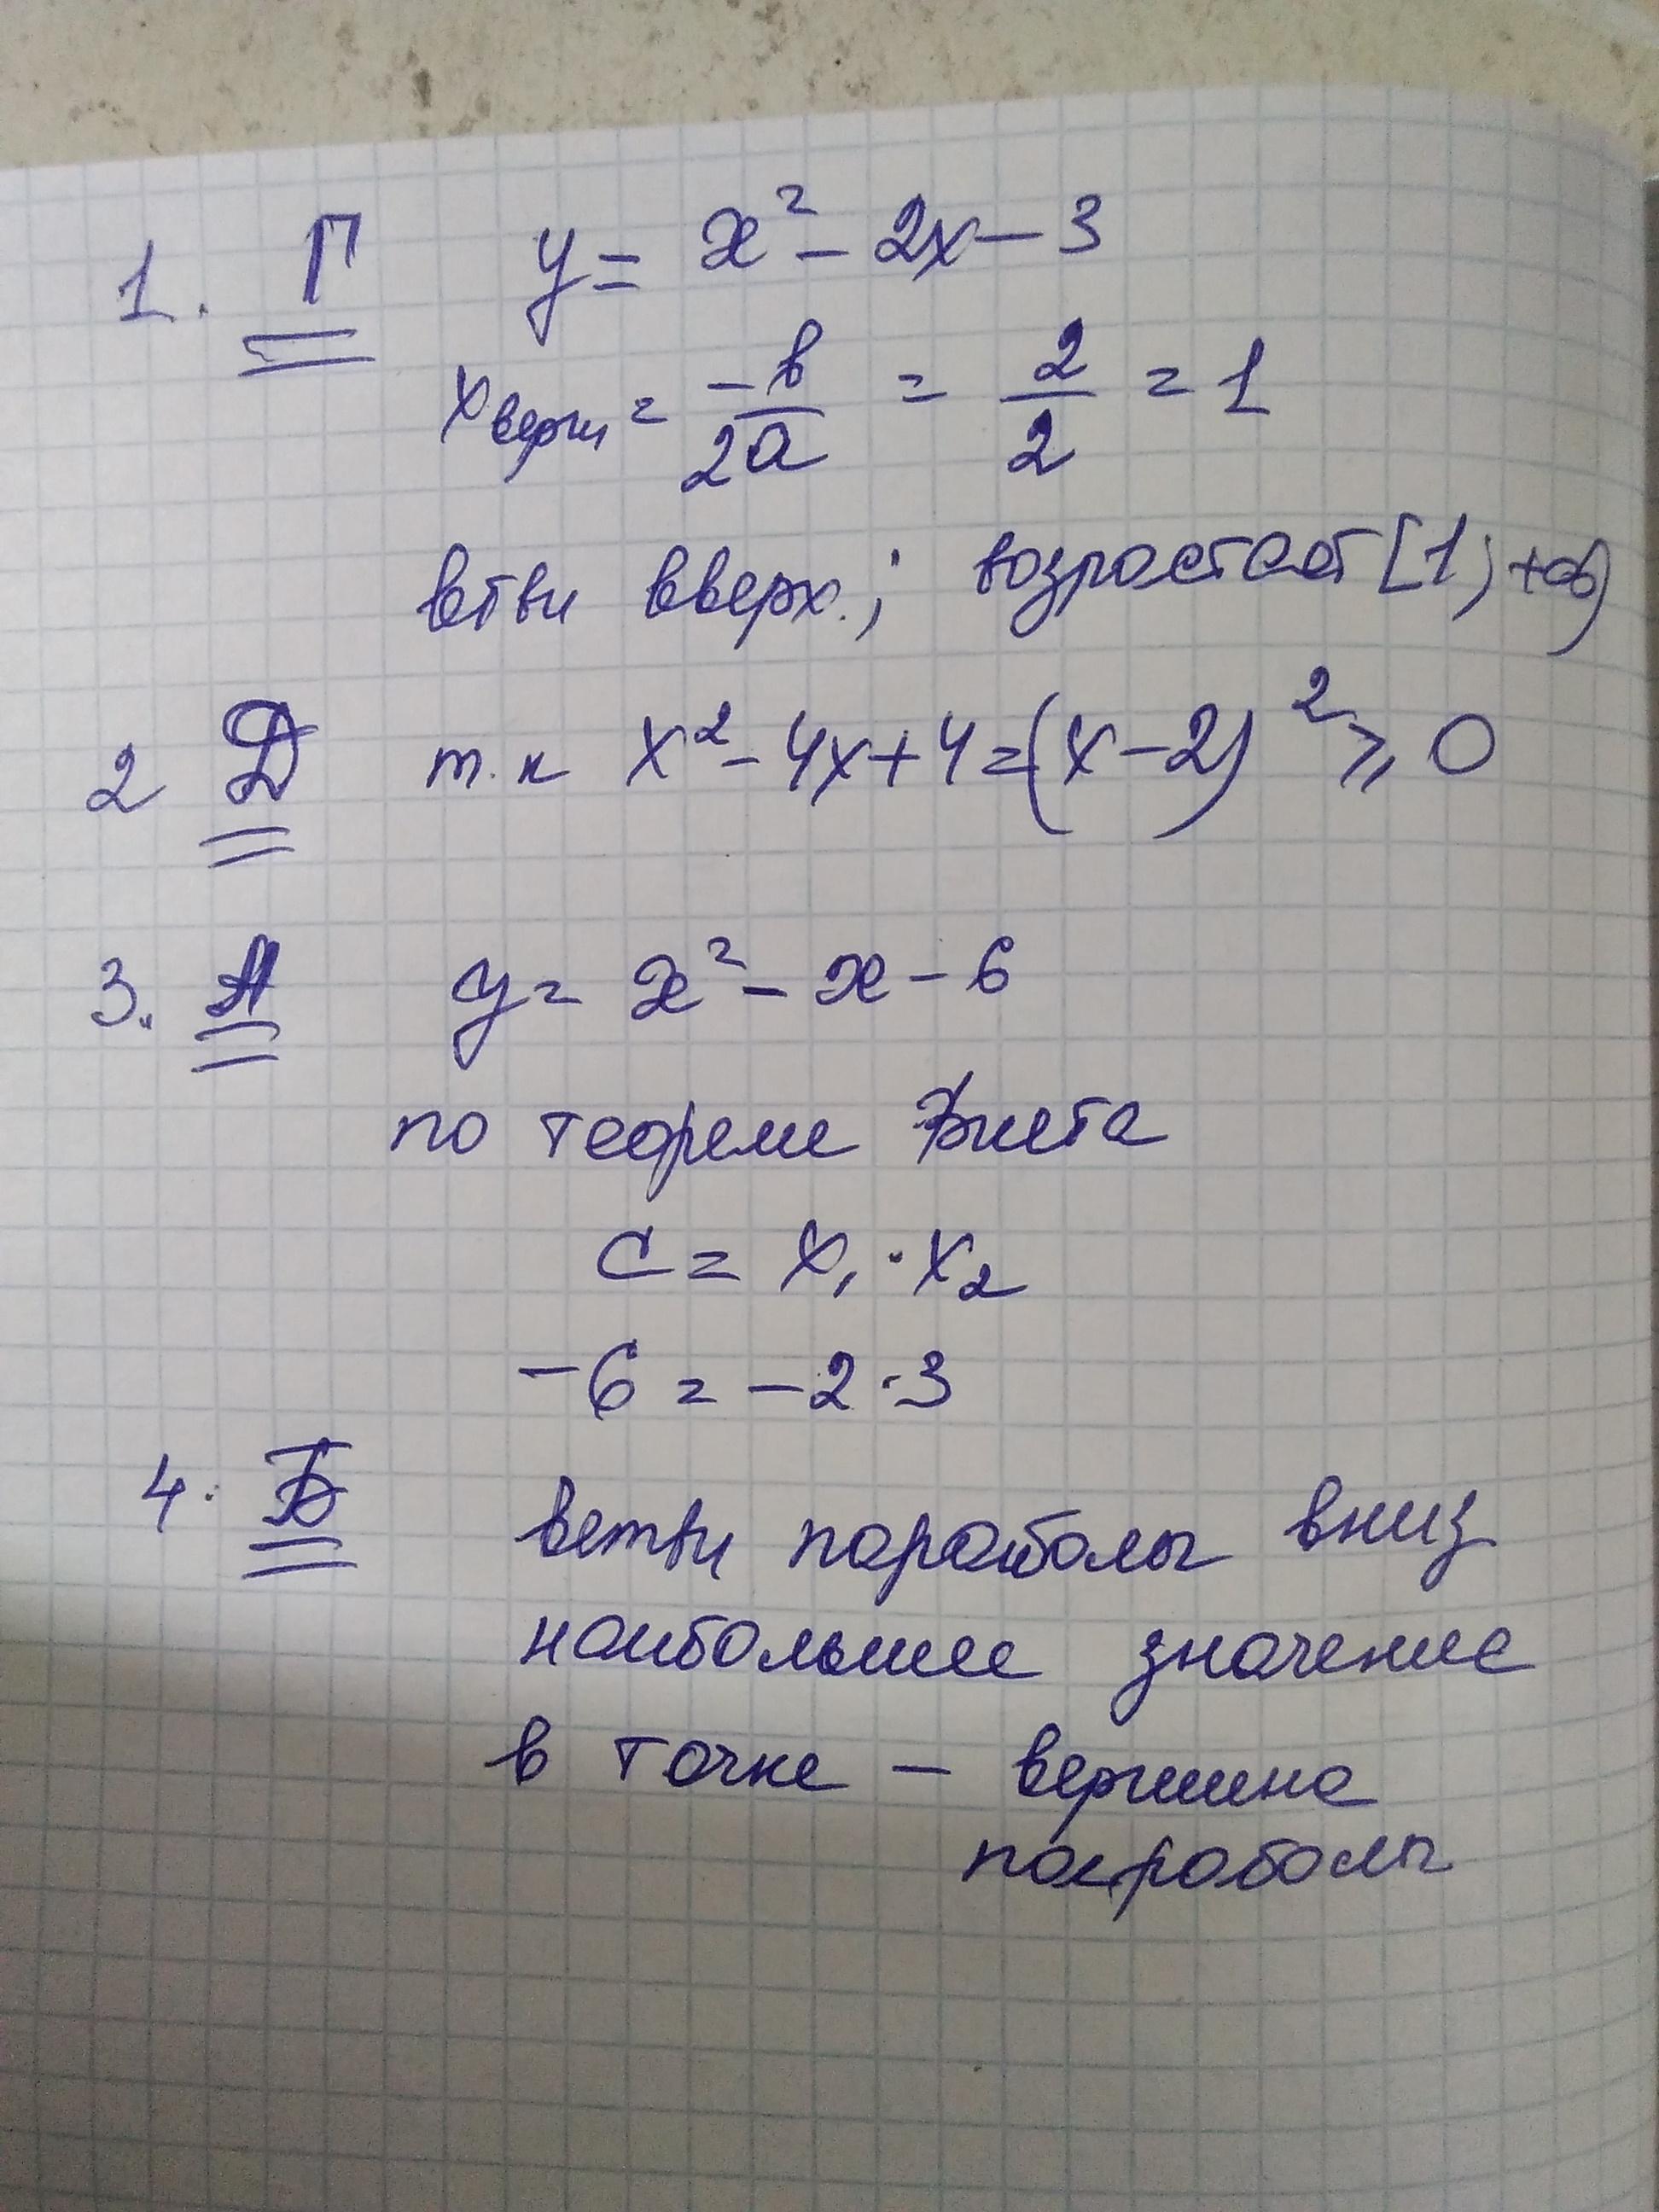 1. Г y = x² - 2x - 3
x верш = -в/2a = 2/2 = 1
втви вверх.; возрастает [1; +∞)
2 Д т.к x² - 4x + 4 = (x - 2)² ⩾ 0
3. А y = x² - x - 6
по теореме Виета
c = x₁ · x₂
-6 = -2 · 3
4. Б ветви параболы вниз
наибольшее значение
в точке — вершина
параболы